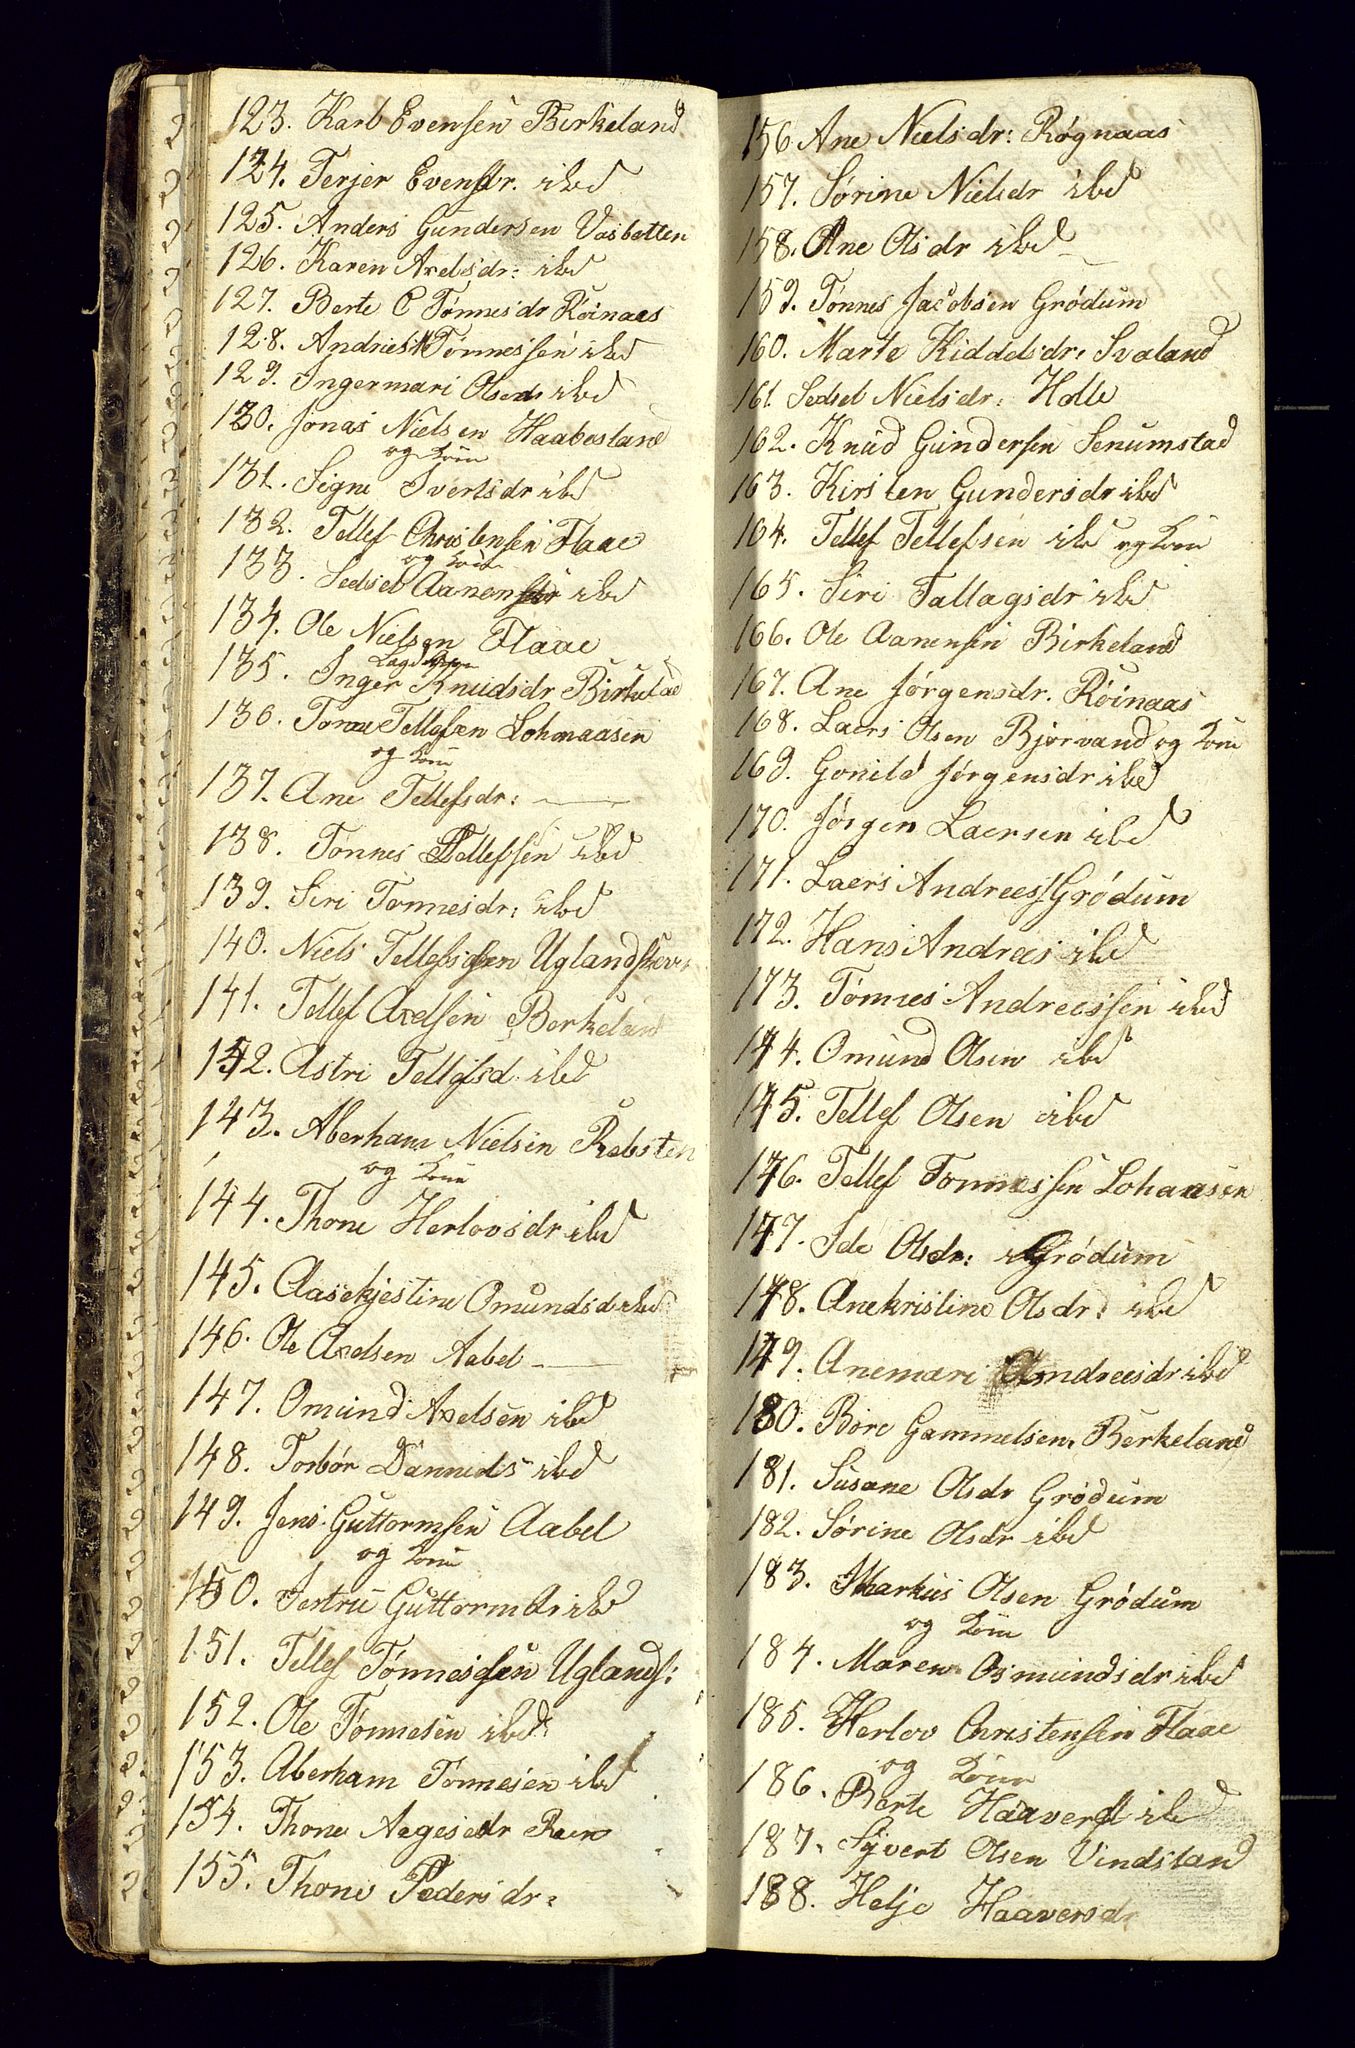 123. Karl Evensen Birkeland
124. Terjer Evensdr. ibd
125. Anders Gundersen Vasbotten
126. Karen Axelsdr: ibd
127. Berte C Tønnesdr Röinaas
128. Andries Tønnessen ibd
129. Ingermari Olsen ibd
130. Jonas Nielsen Haabesland
og Kone
131. Signe Ivertsdr ibd
132. Tellef Christensen Flaae
og Kone
133. Sedsel Aanensdr ibd
134. Ole Nielsen Flaae
135. Inger Knudsdr Birkelad
136. Tønnes Tellefsen Lohnaasen
og Kone
137. Ane Tellefsdr: —
138. Tønnes Tellefsen ibd
139. Siri Tonnesdr: ibd
140. Niels Tellefsen Uglandskov
141. Tellef Axelsen Berkeland
142. Astri Tellefsd. ibd
143. Aberham Nielsen Rebsten
og Kone
144. Thone Herlovsdr ibd
145. Aasekjestine Omundsdr ibd
146. Ole Axelsen Aabel —
147. Omund Axelsen ibd
148. Torbør Dannieds ibd
149. Jens Guttormsen Aabel
og Kone
150. Jertru Guttormsdr ibd
151. Tellef Tønnessen Uglands:
152. Ole Tønnesen ibd
153. Aberham Tönnesen ibd
154. Thone Aagesdr Roen
155. Thone Pedersdr:
156 Ane Nielsdr: Røgnaas
157. Sørine Nielsdr ibd
158. Ane Olsdr ibd —
159. Tønnes Jacobsen Grödum
160. Marte Kiddelsdr: Svaland
161. Sedsel Nielsdr: Holle
162. Knud Gundersen Senumstad
163. Kirsten Gundersdr ibd
164. Tellef Tellefsen ibd og Kone
165. Siri Tallagsdr ibd
166. Ole Aanensen Birkeland
167. Ane Jørgensdr. Röinaas
168. Laers Olsen Bjorvand og Kone
169. Gonild Jørgensdr ibd
170. Jörgen Laersen ibd
171. Laers Andreess Grödum
172. Hans Andrees ibd
173. Tömmes Andreessen ibd
174. Omund Olsen ibd
175. Tellef Olsen ibd
176. Tellef Tonnessen Lohaasen
177. Ide Olsdr: Grödum
178. Anekristine Olsdr: ibd
179. Anemari Andreesdr ibd
180. Bore Gammelsen. Berkeland
181. Susane Olsdr Grödum
182. Sörine Olsdr ibd
183. Markus Olsen Grödum
og Kone
184. Maren Osmundsdr ibd
185. Herlov Christensen Flaae
og Kone
186. Berte Haaversdr ibd
187. Syvert Olsen Vindsland
188. Helje Haaversdr